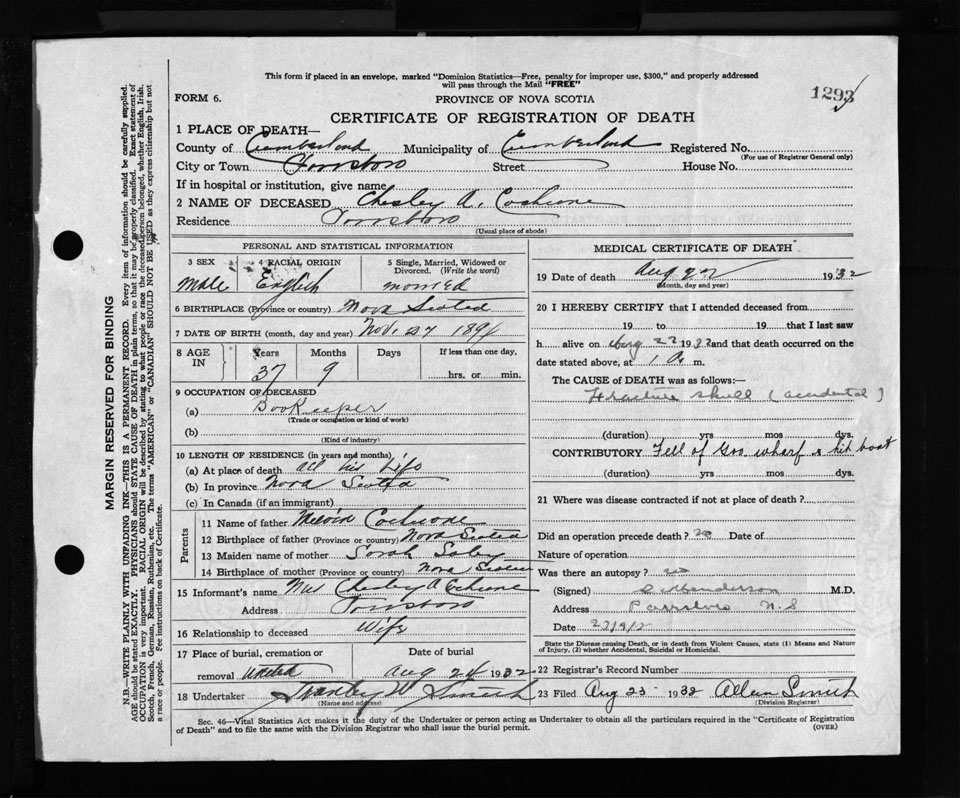 This form if placed in an envelope, marked "Dominion Statistics—Free, penalty for improper use, $300," and properly addressed
will pass through the Mail "FREE"
1293
FORM 6.
PROVINCE OF NOVA SCOTIA
CERTIFICATE OF REGISTRATION OF DEATH
1 PLACE OF DEATH—
County of Cumberland Municipality of Cumberland Registered No.
(For use of Registrar General only)
City or Town Street House No.
If in hospital or institution, give name
2 NAME OF DECEASED Chesley A. Cochrane
Residence
(Usual place of abode)
PERSONAL AND STATISTICAL INFORMATION
3 SEX 4 RACIAL ORIGIN 5 Single, Married, Widowed or Divorced. (Write the word)
male English married
6 BIRTHPLACE (Province or country) Nova Scotia
7 DATE OF BIRTH (month, day and year) Nov. 27 1894
8 AGE IN Years Months Days If less than one day,
37 9 hrs. or min.
9 OCCUPATION OF DECEASED
(a) Bookeeper
(Trade or occupation or kind of work)
(b)
(Kind of industry)
10 LENGTH OF RESIDENCE (in years and months)
(a) At place of death all his life
(b) In province Nova Scotia
(c) In Canada (if an immigrant)
Parents
11 Name of father Cochrane
12 Birthplace of father (Province or country) Nova Scotia
13 Maiden name of mother Sarah
14 Birthplace of mother (Province or country) Nova Scotia
15 Informant's name Mrs Chesley A Cochrane
Address
16 Relationship to deceased Wife
17 Place of burial, cremation or removal Date of burial
Aug 24 1932
18 Undertaker Stanley W Smith
(Name and address)
MEDICAL CERTIFICATE OF DEATH
19 Date of death Aug 22 1932
(Month, day and year)
20 I HEREBY CERTIFY that I attended deceased from
19 to 19 that I last saw
h alive on Aug 22 1932 and that death occurred on the
date stated above, at 1 a. m.
The CAUSE of DEATH was as follows:—
Fracture skull (accidental)
(duration) yrs mos dys.
CONTRIBUTORY Fell of Gov. wharf & hit boat
(duration) yrs mos dys.
21 Where was disease contracted if not at place of death?
Did an operation precede death? no Date of
Nature of operation
Was there an autopsy? no
(Signed) Henderson M.D.
Address Parrsboro N.S
Date
State the Disease causing Death, or in death from Violent Causes, state (1) Means and Nature
of Injury, (2) whether Accidental, Suicidal or Homicidal.
22 Registrar's Record Number
23 Filed Aug 23 1932 Allan Smith
(Division Registrar)
Sec. 46—Vital Statistics Act makes it the duty of the Undertaker or person acting as Undertaker to obtain all the particulars required in the "Certificate of Registration
of Death" and to file the same with the Division Registrar who shall issue the burial permit.
(OVER)
MARGIN RESERVED FOR BINDING
N.B.—WRITE PLAINLY WITH UNFADING INK—THIS IS A PERMANENT RECORD. Every item of information should be carefully supplied.
AGE should be stated EXACTLY. PHYSICIANS should STATE CAUSE OF DEATH in plain terms, so that it may be properly classified. Exact statement of
OCCUPATION is very important. RACIAL ORIGIN will be described by stating to what people or race the deceased person belonged, whether English, Irish,
Scotch, French, German, Russian, Ruthenian, etc. The terms "AMERICAN" or "CANADIAN" SHOULD NOT BE USED as they express citizenship but not
a race or people. Fee instructions on back of Certificate.